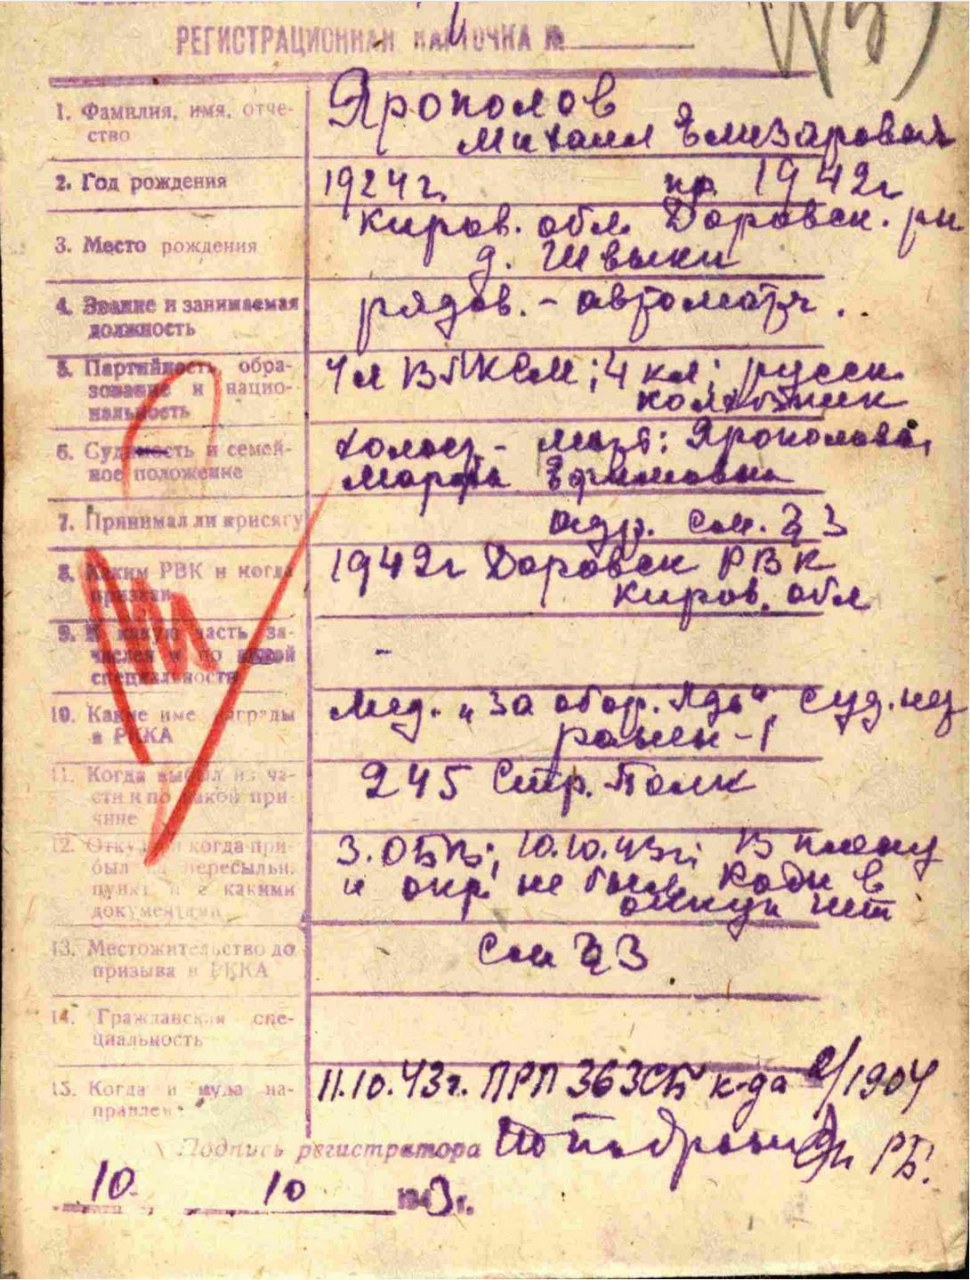 РЕГИСТРАЦИОННАЯ КАРТОЧКА №
1. Фамилия, имя, отче-
ство
Ярополов
Михаил Елизарович
2. Год рождения
1924 г. пр. 1942 г
3. Место рождения
Киров. обл. Даровск. рн
д. Швыки
4. Звание и занимаемая
должность
рядов. - автоматч.
5. Партийность обра-
зование и нацио-
нальность
Чл ВЛКСМ; 4 кл; русск
колхозник
6. Судимость и семей-
ное положение
холост - мать: Ярополова
Марфа Ефимовна
7. Принимал ли присягу
адр. см. § 3
8. Каким РВК и когда
призван
1942 г Даровск РВК
Киров. обл
9. В какую часть за-
числен и по какой
специальности
-
10. Какие имел награды
в РККА
мед. „За обор. Лд“ суд. нет
ранен - 1
11. Когда выбыл из ча-
сти и по какой при-
чине
245 Стр. Полк
12. Откуда и когда при-
был на пересыльн.
пункт и с какими
документами
10.10.43 г; В плену
и окр. не был
нет
13. Местожительство до
призыва в РККА
См § 3
14. Гражданская спе-
циальность
15. Когда и куда на-
правлен
11.10.43 г. ПРП 36 ЗСБ к-да 2/1904
Подпись регистратора
10 10 1943 г.